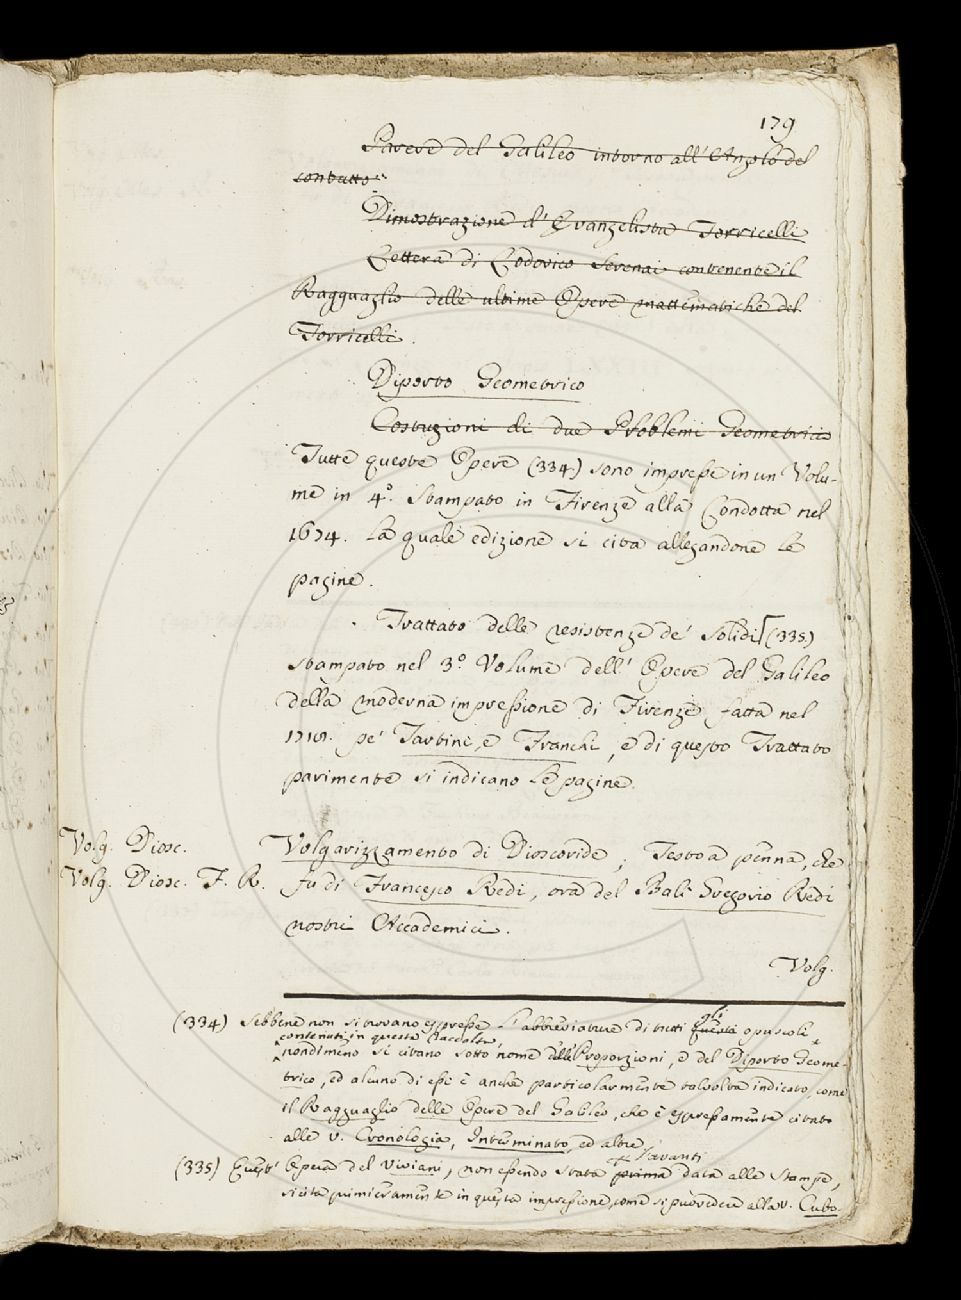 179
Parere del Galileo intorno all'Angolo del
contatto.
Dimostrazione d'Evangelista Torricelli
Lettera di Lodovico Serenai contenente il
Ragguaglio delle ultime Opere mattematiche del
Torricelli.
Diporto Geometrico
Costuzioni di due Problemi Geometrici
Tutte queste Opere (334) sono impresse in un Volu-
me in 4º. Stampato in Firenze alla Condotta nel
1674. La quale edizione si cita allegandone le
pagine.
Trattato delle resistenze de' Solidi (335)
stampato nel 3º Volume dell'Opere del Galileo
della moderna impressione di Firenze fatta nel
1718. pe' Tartini, e Franchi, e di questo Trattato
parimente si indicano le pagine.
Volg. Diosc.
Volgarizzamento di Dioscoride; Testo a penna, che
Volg. Diosc. F. R.
fu di Francesco Redi, ora del Balì Gregorio Redi
nostri Accademici.
Volg.
gli
(334) Sebbene non si trovano espresse l'abbreviature di tutti questi opuscoli
contenuti in questa Raccolta,
nondimeno si citano sotto nome delle Proporzioni, e del Diporto Geome-
trico, ed alcuno di essi è anche particolarmente talvolta indicato, come
il Ragguaglio delle Opere del Galileo, che è espressamente citato
alle v. Cronologia, Interminato, ed altre.
davanti
(335) Quest'Opera del Viviani, non essendo stata prima data alle Stampe,
si cita primieramente in questa impressione, come si può vedere alla v. Cubo.